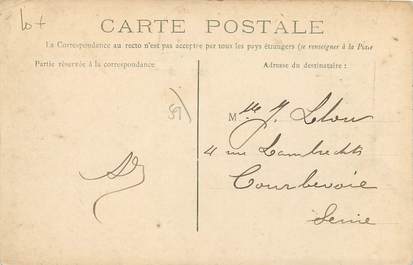 CARTE POSTALE
La Correspondance au recto n'est pas acceptée par tous les pays étrangers (se renseigner à la Poste
Partie réservée à la correspondance
Adresse du destinataire :
59
Mlle J.
4 rue Lambrechts
Courbevoie
Seine